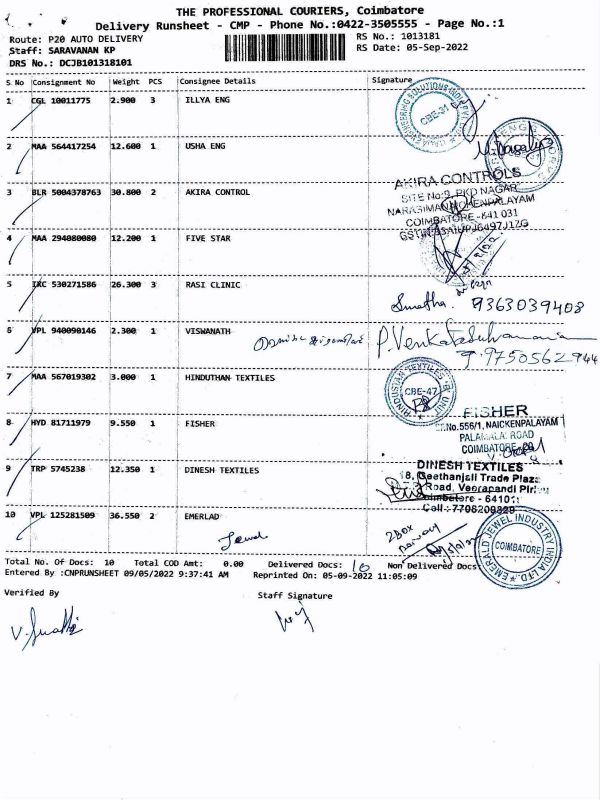 THE PROFESSIONAL COURIERS, Coimbatore
Delivery Runsheet - CMP - Phone No.:0422-3505555 - Page No.:1
Route: P20 AUTO DELIVERY
RS No.: 1013181
Staff: SARAVANAN KP
RS Date: 05-Sep-2022
DRS No.: DCJB101318101
S No Consignment No Weight PCS Consignee Details Signature
1 CGL 10011775 2.900 3 ILLYA ENG
CBE-31
2 MAA 564417254 12.600 1 USHA ENG
3 BLR 5004378763 30.800 2 AKIRA CONTROL
AKIRA CONTROLS
SITE No:9, RKD NAGAR
NARASIMANAICKENPALAYAM
COIMBATORE-641 031
4 MAA 294080080 12.200 1 FIVE STAR
5 IXC 530271586 26.300 3 RASI CLINIC
9363039408
6 VPL 940090146 2.300 1 VISWANATH
P.Venkatasubramania
9750562944
7 MAA 567019302 3.000 1 HINDUTHAN TEXTILES
HINDUSTAN TEXTILES
CBE-47
8 HYD 81711979 9.550 1 FISHER
FISHER
No.556/1, NAICKENPALAYAM
PALAMALAI ROAD
COIMBATORE
9 TRP 5745238 12.350 1 DINESH TEXTILES
DINESH TEXTILES
8, Geethanjali Trade Plaza
Road, Veerapandi
Coimbatore - 64101
Cell : 7708209829
10 VPL 125281509 36.550 2 EMERLAD
2 Box
EMERALD JEWEL INDUSTRY INDIA LTD.
COIMBATORE
Total No. Of Docs: 10 Total COD Amt: 0.00 Delivered Docs: 10 Non Delivered Docs:
Entered By :CNPRUNSHEET 09/05/2022 9:37:41 AM Reprinted On: 05-09-2022 11:05:09
Verified By
Staff Signature